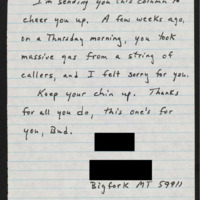 I'm sending you this column to
cheer you up. A few weeks ago,
on a Thursday morning, you took
massive gas from a string of
callers, and I felt sorry for you.
Keep your chin up. Thanks
for all you do, this one's for
you, Bud.
Bigfork MT 59911